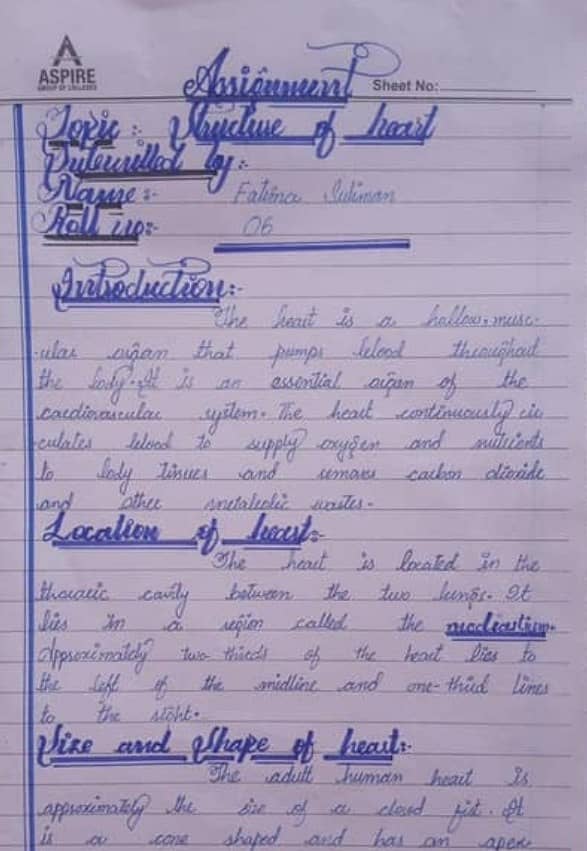 ASPIRE
GROUP OF COLLEGES
Assignment
Sheet No:
Topic : Structure of heart
Submitted by:-
Name :-   Fatima Suliman
Roll no:-   06
Introduction:-
The heart is a hollow, musc-
-ular organ that pumps blood throughout
the body. It is an essential organ of the
cardiovascular system. The heart continuously cir
-culates blood to supply oxygen and nutrients
to body tissues and remove carbon dioxide
and other metabolic wastes.
Location of heart:-
The heart is located in the
thoracic cavity between the two lungs. It
lies in a region called the
Approximately two thirds of the heart lies to
the left of the midline and one-third lines
to the right.
Size and Shape of heart:-
The adult human heart is
approximately the size of a closed fist. It
is a cone shaped and has an apex